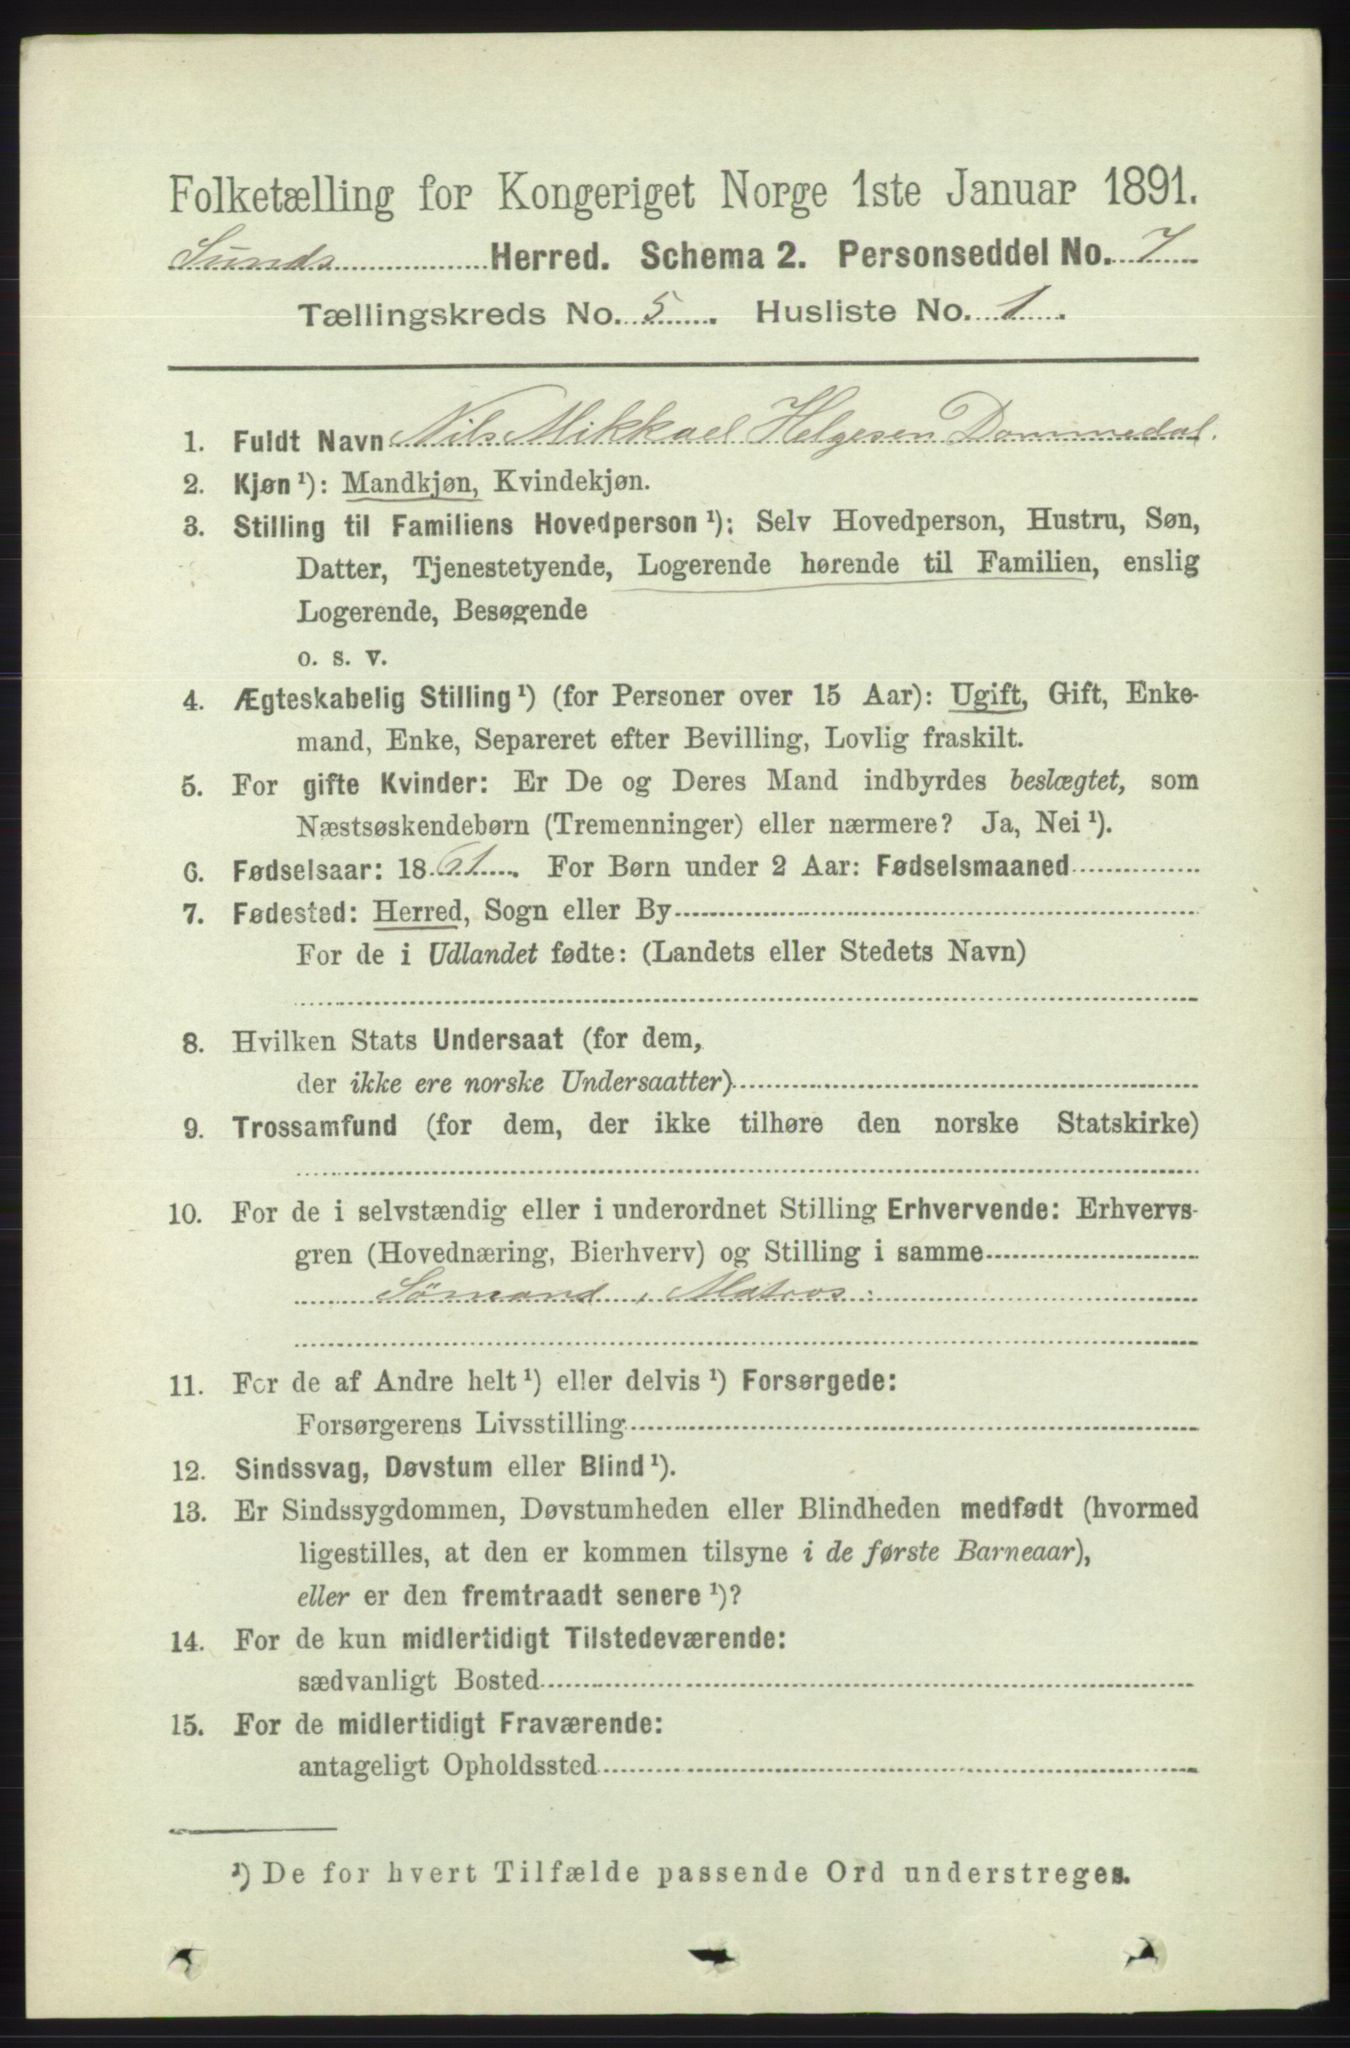 Folketælling for Kongeriget Norge 1ste Januar 1891.
Sunds Herred. Schema 2. Personseddel No. 7
Tællingskreds No. 5. Husliste No. 1.
1. Fuldt Navn Nils Mikkael Helgesen Dommedal.
2. Kjøn ¹): Mandkjøn, Kvindekjøn.
3. Stilling til Familiens Hovedperson ¹): Selv Hovedperson, Hustru, Søn,
Datter, Tjenestetyende, Logerende hørende til Familien, enslig
Logerende, Besøgende
o. s. v.
4. Ægteskabelig Stilling ¹) (for Personer over 15 Aar): Ugift, Gift, Enke-
mand, Enke, Separeret efter Bevilling, Lovlig fraskilt.
5. For gifte Kvinder: Er De og Deres Mand indbyrdes beslægtet, som
Næstsøskendebørn (Tremenninger) eller nærmere? Ja, Nei ¹).
6. Fødselsaar: 1861. For Børn under 2 Aar: Fødselsmaaned
7. Fødested: Herred, Sogn eller By
For de i Udlandet fødte: (Landets eller Stedets Navn)
8. Hvilken Stats Undersaat (for dem,
der ikke ere norske Undersaatter)
9. Trossamfund (for dem, der ikke tilhøre den norske Statskirke)
10. For de i selvstændig eller i underordnet Stilling Erhvervende: Erhvervs-
gren (Hovednæring, Bierhverv) og Stilling i samme
Sömand, Matros.
11. For de af Andre helt ¹) eller delvis ¹) Forsørgede:
Forsørgerens Livsstilling
12. Sindssvag, Døvstum eller Blind ¹).
13. Er Sindssygdommen, Døvstumheden eller Blindheden medfødt (hvormed
ligestilles, at den er kommen tilsyne i de første Barneaar),
eller er den fremtraadt senere ¹)?
14. For de kun midlertidigt Tilstedeværende:
sædvanligt Bosted
15. For de midlertidigt Fraværende:
antageligt Opholdssted
¹) De for hvert Tilfælde passende Ord understreges.